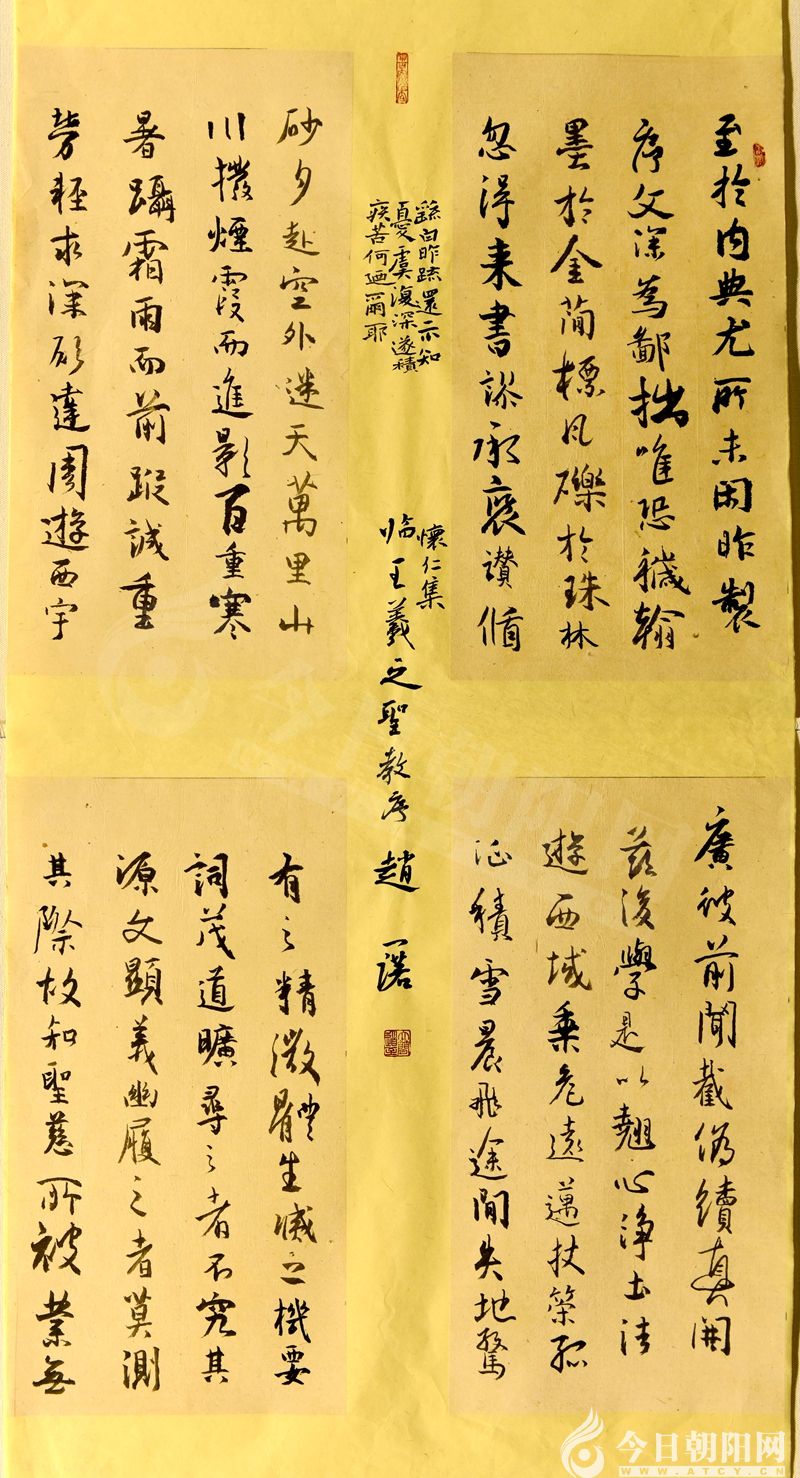 至於内典尤所未閑昨製
序文深為鄙拙唯恐穢翰
墨於金簡標瓦礫於珠林
忽得来書謬承褒讃循
廣彼前聞截偽續真開
兹後學是以翹心淨土法
遊西域乗危遠邁杖策孤
征積雪晨飛途間失地驚
砂夕起空外迷天萬里山
川撥煙霞而進影百重寒
暑躡霜雨而前蹤誠重
勞輕求深願達周遊西宇
有之精微體生滅之機要
詞茂道曠尋之者不究其
源文顯義幽履之者莫測
其際故知聖慈所被業無
繇白昨疏還示知
憂虞復深遂積
疾苦何迺爾耶
懷仁集
临王羲之聖教序 趙一諾
今日朝阳网
WWW.ATCY.CN